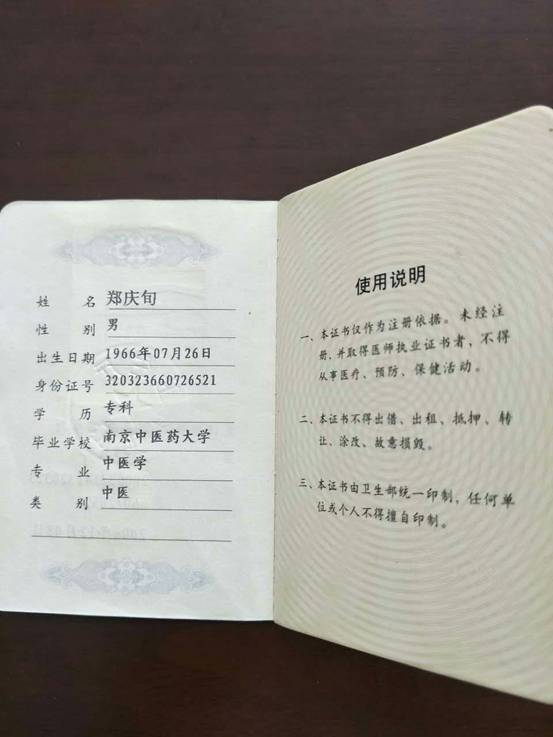 姓名 郑庆旬
性别 男
出生日期 1966年07月26日
身份证号 320323660726521
学历 专科
毕业学校 南京中医药大学
专业 中医学
类别 中医
使用说明
一、本证书仅作为注册依据。未经注
册、并取得医师执业证书者，不得
从事医疗、预防、保健活动。
二、本证书不得出借、出租、抵押、转
让、涂改、故意损毁。
三、本证书由卫生部统一印制，任何单
位或个人不得擅自印制。